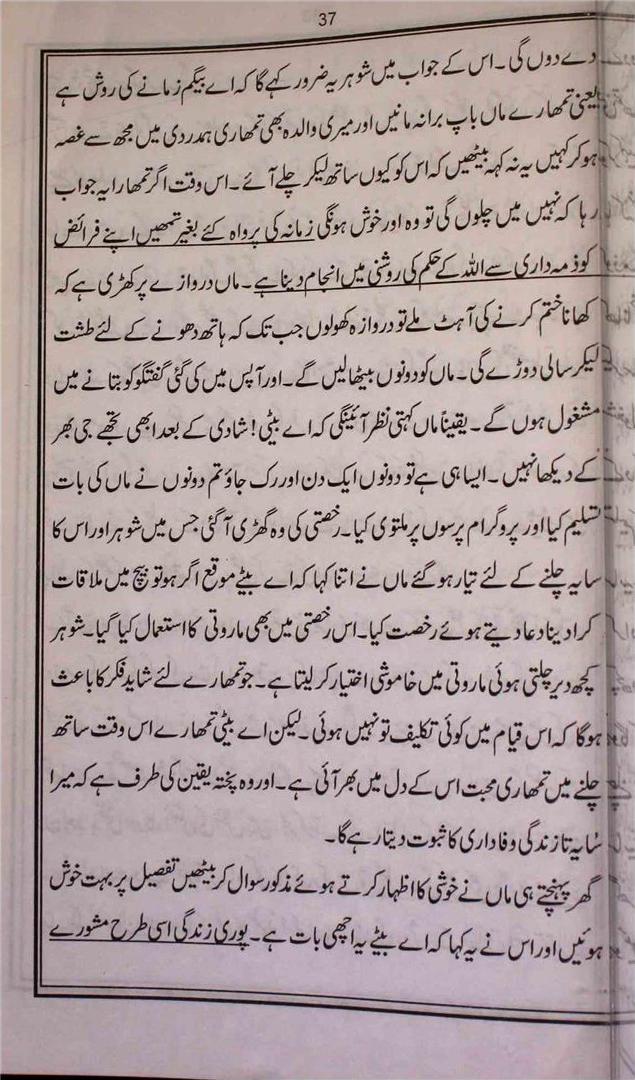 37
دے دوں گی۔ اس کے جواب میں شوہر یہ ضرور کہے گا کہ اے بیگم زمانے کی روش ہے
یعنی تمھارے ماں باپ برا نہ مانیں اور میری والدہ بھی تمھاری ہمدردی میں مجھ سے غصہ
ہو کر کہیں یہ نہ کہہ بیٹھیں کہ اس کو کیوں ساتھ لیکر چلے آئے۔ اس وقت اگر تمھارا یہ جواب
رہا کہ نہیں میں چلوں گی تو وہ اور خوش ہونگی زمانہ کی پرواہ کئے بغیر تمھیں اپنے فرائض
کو ذمہ داری سے اللہ کے حکم کی روشنی میں انجام دینا ہے۔ ماں دروازے پر کھڑی ہے کہ
کھانا ختم کرنے کی آہٹ ملے تو دروازہ کھولوں جب تک کہ ہاتھ دھونے کے لئے طشت
لیکر سالی دوڑے گی۔ ماں کو دونوں بیٹھا لیں گے۔ اور آپس میں کی گئی گفتگو کو بتانے میں
مشغول ہوں گے۔ یقیناً ماں کہتی نظر آئینگی کہ اے بیٹی! شادی کے بعد ابھی تجھے جی بھر
کے دیکھا نہیں۔ ایسا ہی ہے تو دونوں ایک دن اور رک جاؤ تم دونوں نے ماں کی بات
تسلیم کیا اور پروگرام پرسوں پر ملتوی کیا۔ رخصتی کی وہ گھڑی آ گئی جس میں شوہر اور اس کا
سایہ چلنے کے لئے تیار ہو گئے ماں نے اتنا کہا کہ اے بیٹے موقع اگر ہو تو بیچ میں ملاقات
کرا دینا دعا دیتے ہوئے رخصت کیا۔ اس رخصتی میں بھی ماروتی کا استعمال کیا گیا۔ شوہر
کچھ دیر چلتی ہوئی ماروتی میں خاموشی اختیار کر لیتا ہے۔ جو تمھارے لئے شاید فکر کا باعث
ہوگا کہ اس قیام میں کوئی تکلیف تو نہیں ہوئی۔ لیکن اے بیٹی تمھارے اس وقت ساتھ
چلنے میں تمھاری محبت اس کے دل میں بھر آئی ہے۔ اور وہ پختہ یقین کی طرف ہے کہ میرا
سایہ تا زندگی وفاداری کا ثبوت دیتا رہے گا۔
گھر پہنچتے ہی ماں نے خوشی کا اظہار کرتے ہوئے مذکور سوال کر بیٹھیں تفصیل پر بہت خوش
ہوئیں اور اس نے یہ کہا کہ اے بیٹے یہ اچھی بات ہے۔ پوری زندگی اسی طرح مشورے